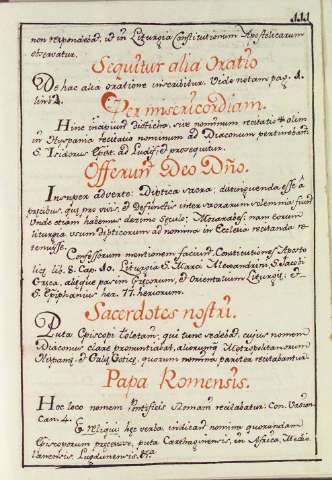 111.
non respondebat, ut in Liturgia Constitutionum Apostolicarum
observatur.
Sequitur alia Oratio
De hac alia oratione inscribitur. Vide notam pag. 1.
Per misericordiam.
Hinc incipiunt diptycha, sive nominum recitatio olim
in Hyspania recitatio nominum ad Diaconum pertinebat
S. Isidorus Epist. ad Ludif. prosequitur.
Offerunt Deo Dño.
Insuper adverte: Diptica sacra, distinguenda esse à
precibus, quæ pro vivis, et Defunctis inter sacrorum solemnia fiunt
Unde etiam habemus decimo seculo, Mozarabes nam eorum
liturgia usum Dipticorum ad nomina in Ecclesia recitanda re-
tenuisse.
Confessorum mentionem faciunt Constitutiones Aposto
licæ lib. 8. Cap. 40. Liturgia S. Marci Alexandrini, S. Jacobi
Græca, aliæque passim Græcorum, et Orientalium Liturgiæ; et
S. Epiphanius her. 77. heriorum.
Sacerdotes nostri.
Puta Episcopi Toletani, qui tunc sedebat, cujus nomen
Diaconus clare pronuntiabat, aliorumque Metropolitanorum
Hispaniæ, et Galiæ Goticæ, quorum nomina pariter recitabantur.
Papa Romensis.
Hoc loco nomen Pontificis Romani recitabatur. Con. Vasion
Can. 4.
Et Reliqui hæc verba indicant nomina quorundam
Episcoporum præcipue, puta Carthaginensis, in Africa, Medio
lanensis, Lugdunensis, &a.